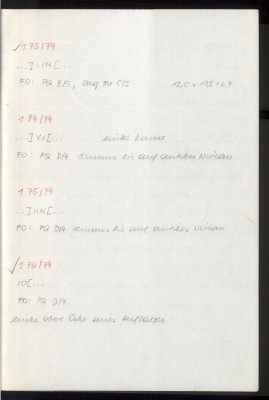 √ 173/74
...] · IN [...
FO: PQ B/5, eng zu C/5
174/74
...] VI [...
FO: PQ D/4 Humus bis auf antikes Niveau
175/74
...] IIN [...
FO: PQ D/4 Humus bis auf antikes Niveau
√ 176/74
IO [...
FO: PQ D/4
linke obere Ecke eines